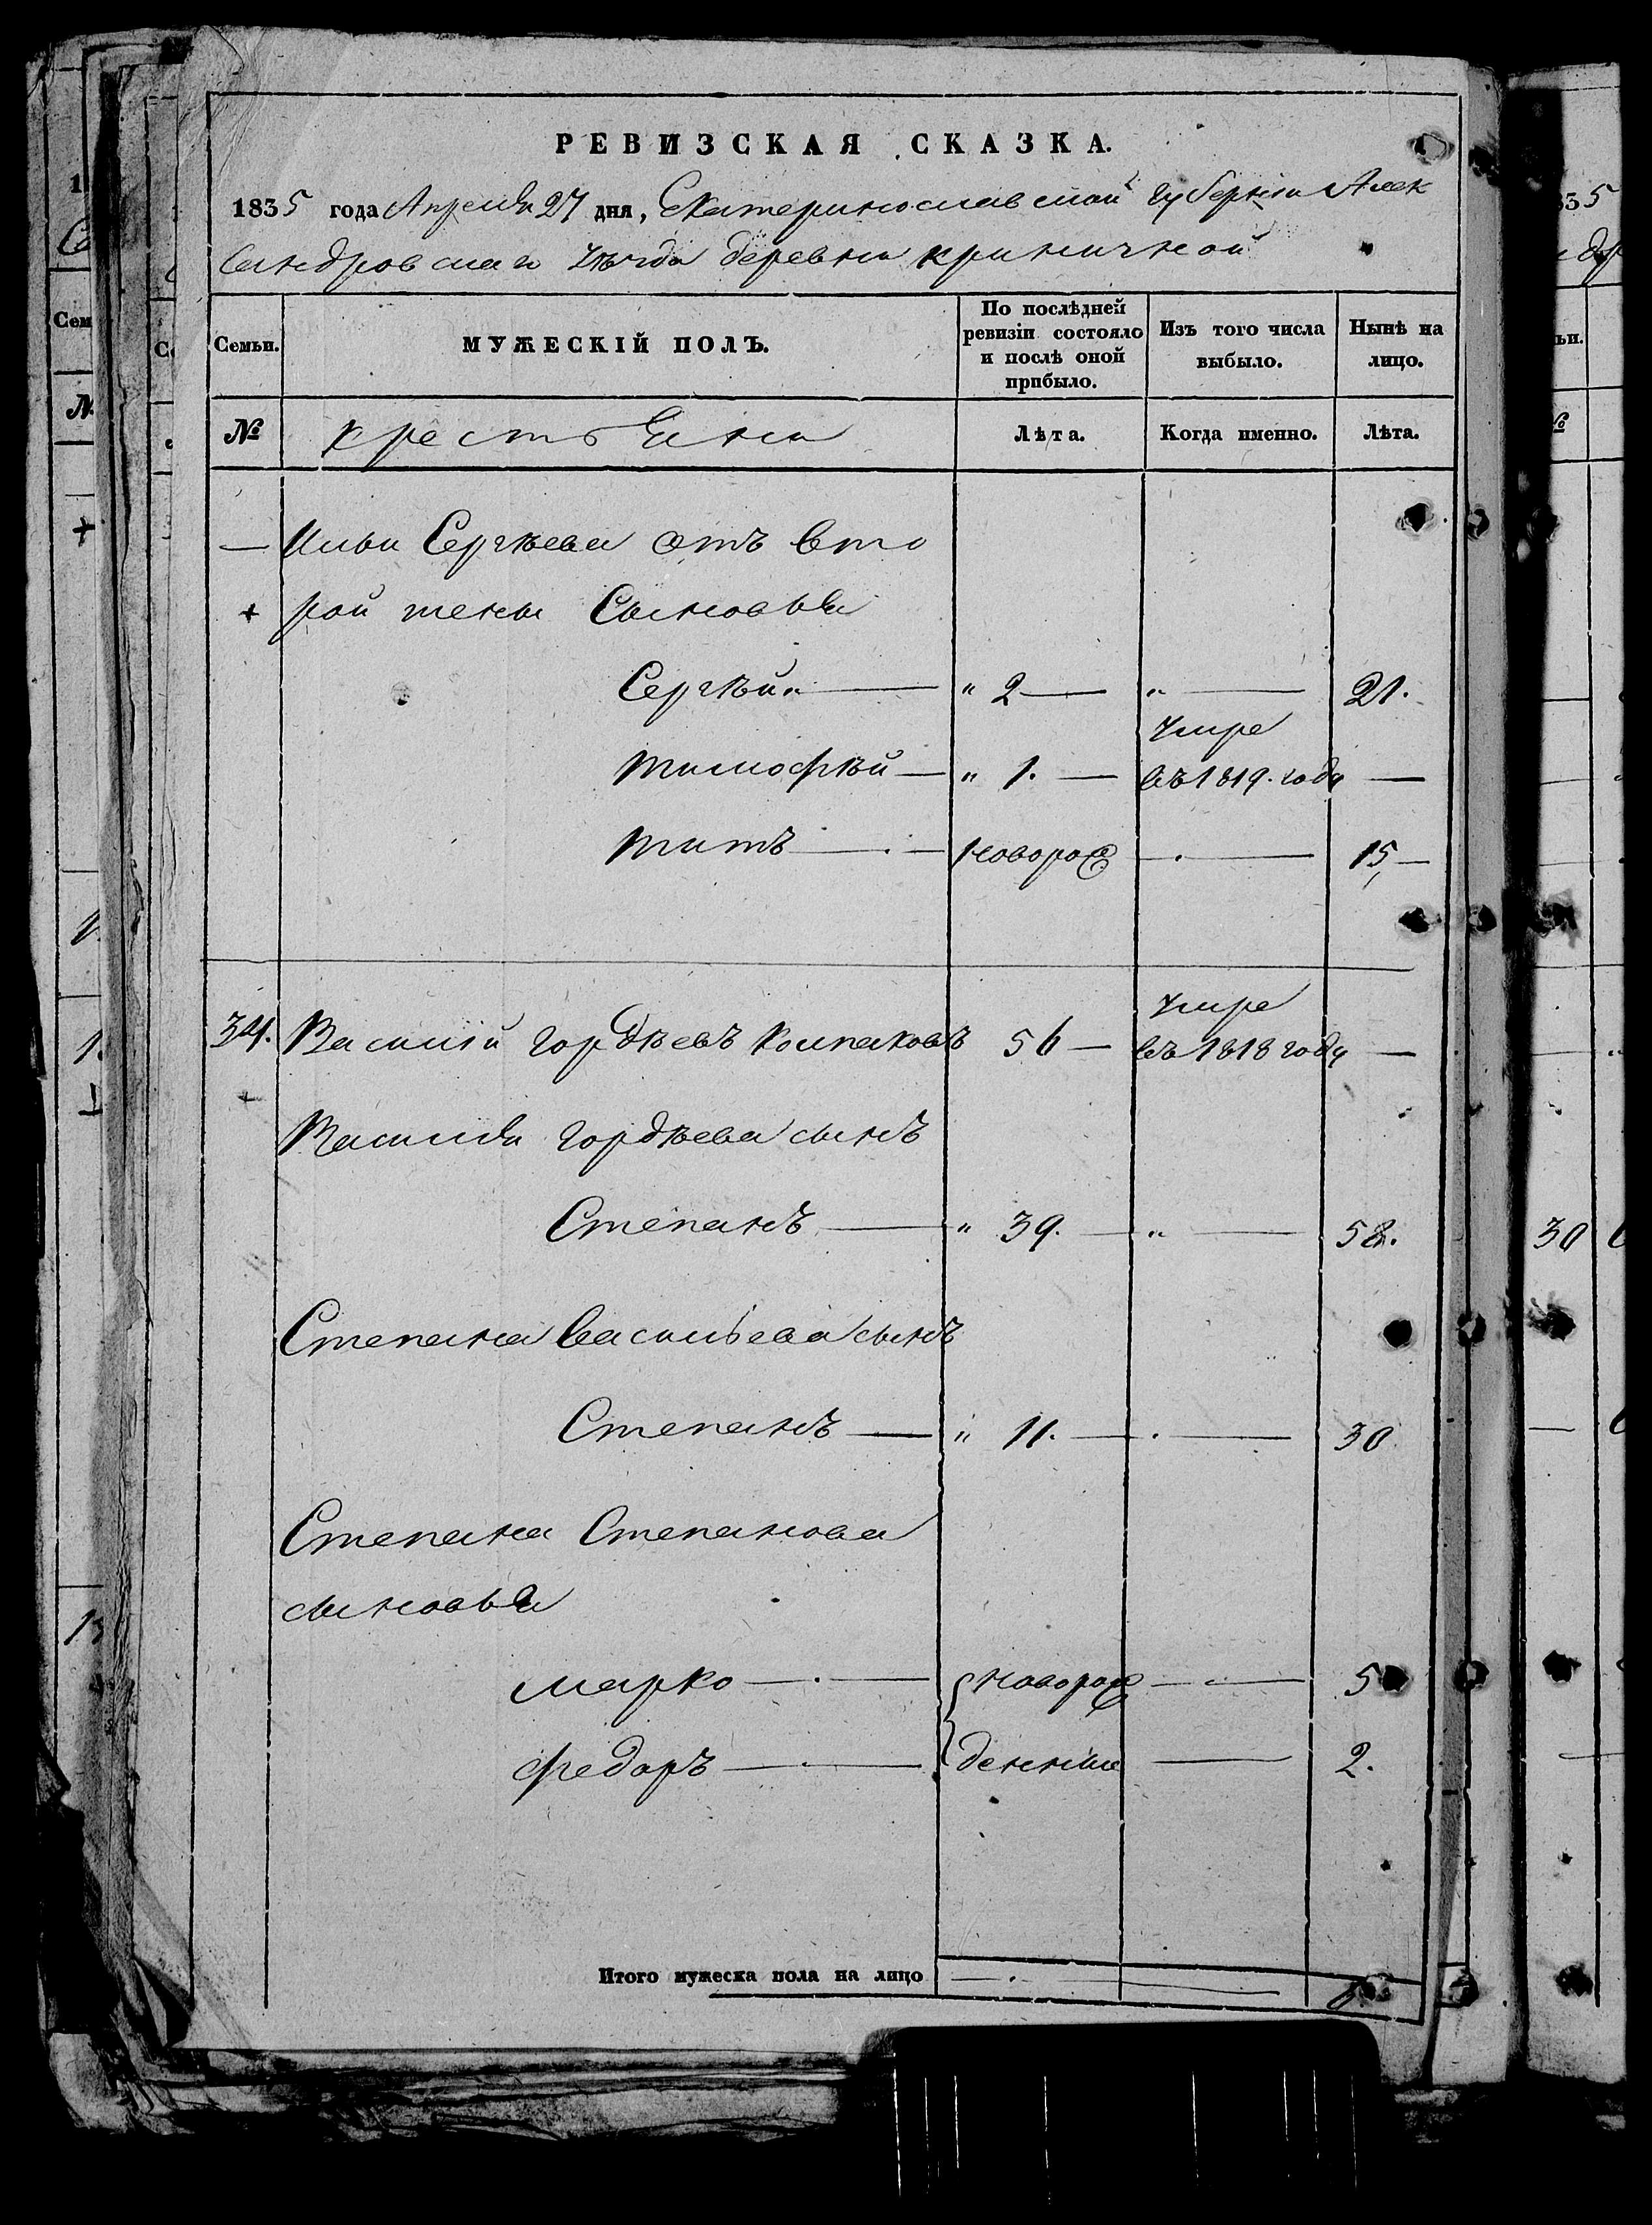 РЕВИЗСКАЯ СКАЗКА.
1835 года Апреля 27 дня, Екатеринославской губернии Алек
сандровскаго уѣзда деревни криничной
Семьи. МУЖЕСКІЙ ПОЛЪ. По послѣдней ревизіи состояло и послѣ оной прибыло. Изъ того числа выбыло. Нынѣ на лицо.
№ крестьяни Лѣта. Когда именно. Лѣта.
— Ильи Сергѣева отъ вто
+ рой жены Сыновья
Сергѣй „ — „ 2 — „ — 21.
умре
Тимофѣй — „ 1. — въ 1819. году —
Титъ — новорож — 15, —
умре
34. Василій Гордѣевъ Колпаковъ 56 — въ 1818 году —
Василія Гордѣева сынъ
Степанъ — „ 39. — „ — 58.
Степана Васильева сынъ
Степанъ — „ 11. — 30
Степана Степанова
сыновья
марко — новорож — 5
федоръ — денніи — 2.
Итого мужеска пола на лицо —